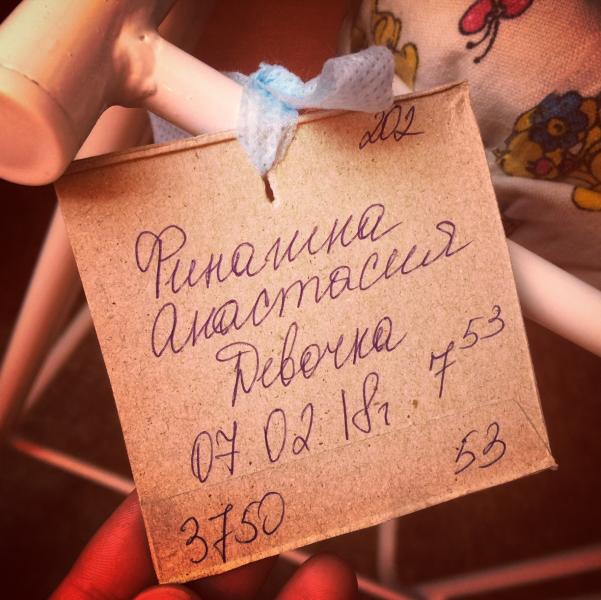 202
Финашина
Анастасия
Девочка
07.02.18г. 7 53
3750 53